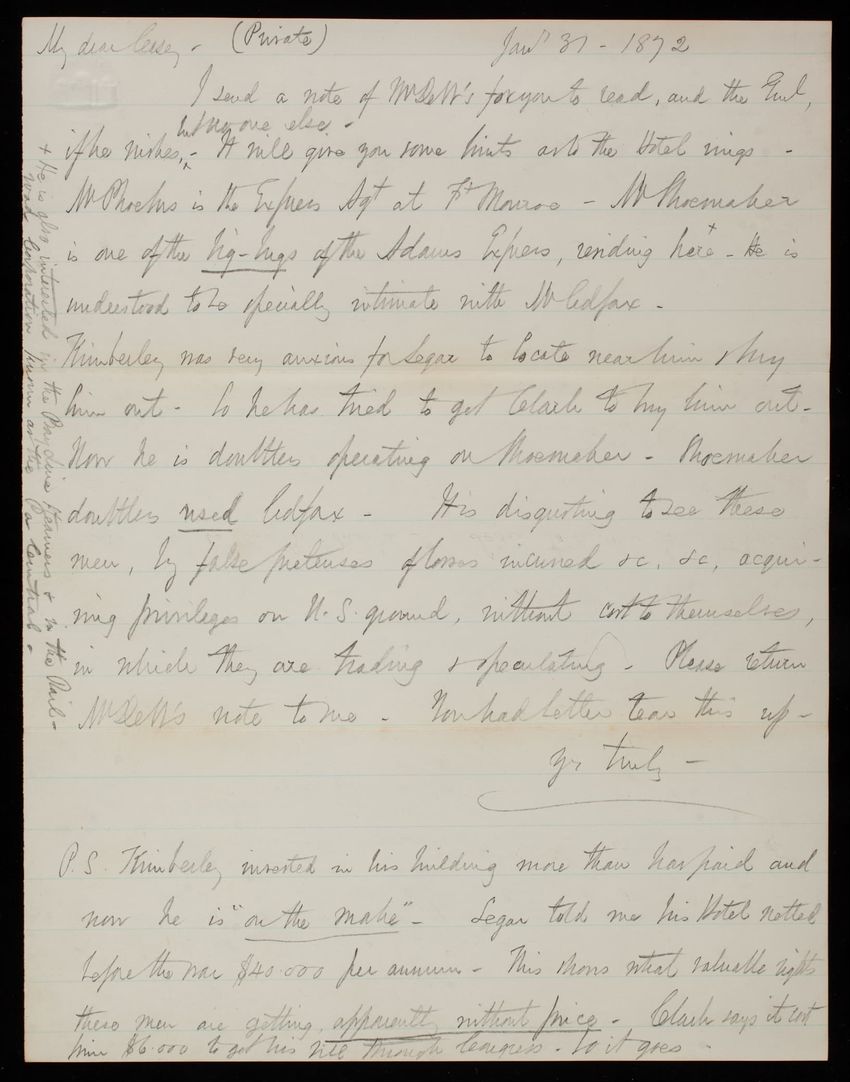 My dear Casey - (Private) Jany 31 - 1872
I send a note of Mr DeW's for you to read, and the Genl,
but no one else -
if he wishes, - It will give you some hints as to the Hotel rings -
Mr Phoebus is the Express Agt at Ft Monroe - Mr Shoemaker
is one of the big-bugs of the Adams Express, residing here + - He is
understood to be specially intimate with Mr Colfax -
Kimberley was very anxious for Segar to locate near him & buy
him out - So he has tried to get Clark to buy him out -
Now he is doubtless operating on Shoemaker - Shoemaker
doubtless used Colfax - It is disgusting to see these
men, by false pretenses of losses incurred &c, &c, acqui-
ring privileges on U.S. ground, without cost to themselves,
in which they are trading & speculating - Please return
Mr DeW's note to me - You had better tear this up -
Yrs truly -
P.S. Kimberley invested in his building more than has paid and
now he is "on the make" - Segar told me his Hotel netted
before the war $40.000 per annum - This shows what valuable rights
these men are getting, apparently without price - Clark says it cost
him $6.000 to get his bill through Congress - So it goes -
+ He is also interested in the Baydline Steamers & in the Rail-
road Corporation known as the Pa Central -